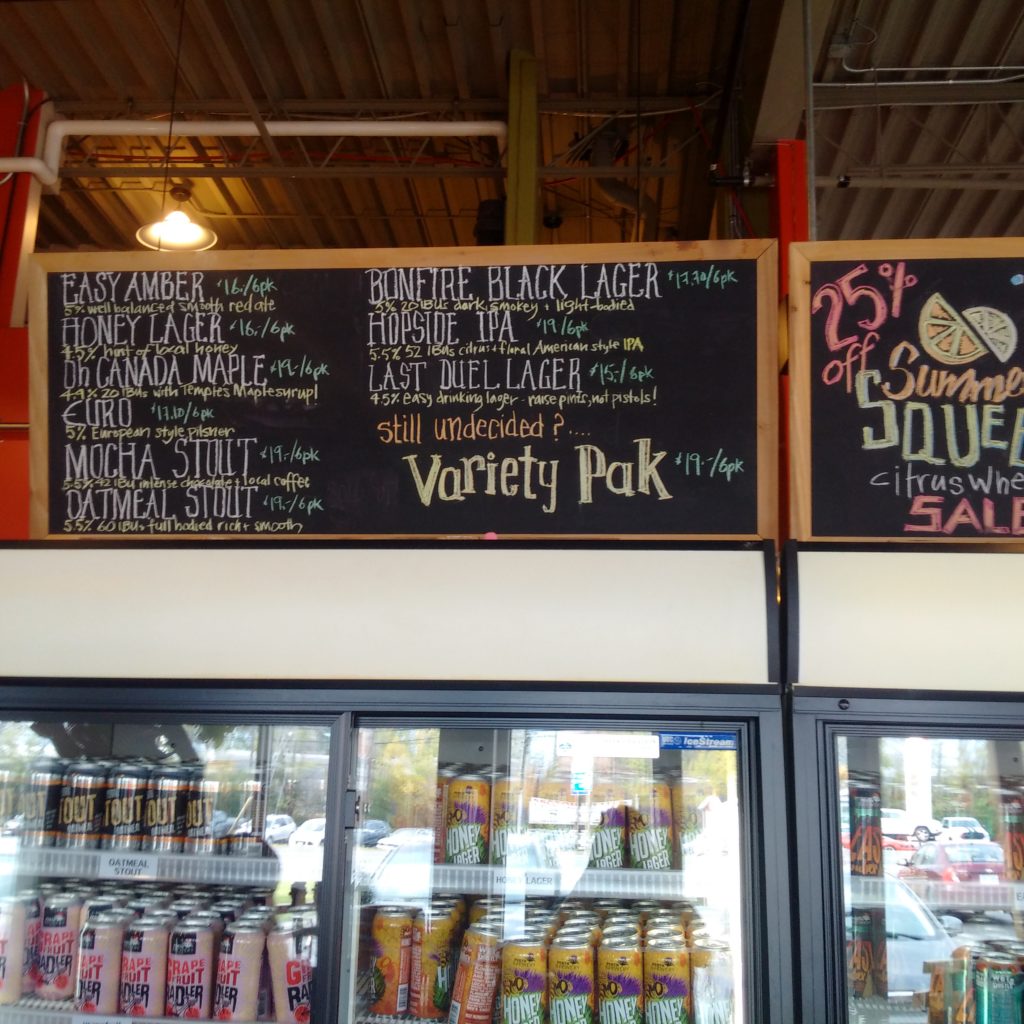 EASY AMBER $16.-/6pk
5% well balanced + smooth red ale
HONEY LAGER $16.-/6pk
4.5% hint of local honey
Oh CANADA MAPLE $19.-/6pk
4.9% 20 IBUs with Temple's Maple syrup!
EURO $17.10/6pk
5% European style pilsner
MOCHA STOUT $19.-/6pk
5.5% 42 IBU intense chocolate + local coffee
OATMEAL STOUT $19.-/6pk
5.5% 60 IBUs full bodied rich + smooth
BONFIRE BLACK LAGER
5% 20 IBUs dark, smokey + light-bodied
HOPSIDE IPA $19/6pk
5.5% 52 IBUs citrus + floral American style IPA
LAST DUEL LAGER $15.-/6pk
4.5% easy drinking lager - raise pints, not pistols!
still undecided?....
Variety Pak $19.-/6pk
25%
off
Summe
SQUEE
citrus whe
SALE
IceStream
OATMEAL
STOUT
HONEY LAGER
TOUT
TOUT
OUT
OUT
HONEY
LAGER
HONEY
LAGER
HONEY
LAGER
GRAPE
FRUIT
RADLER
HONEY
HONEY
HONEY
HONEY